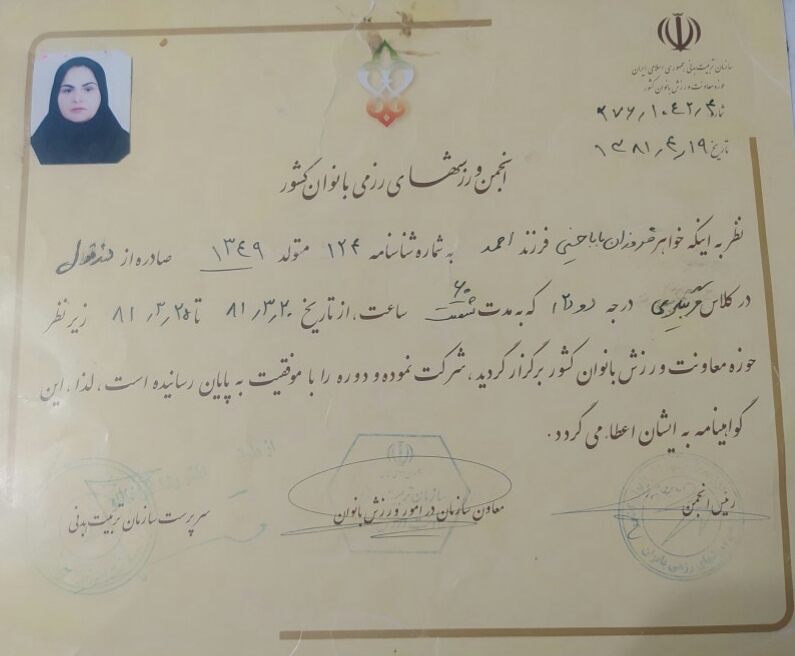 سازمان تربیت بدنی جمهوری اسلامی ایران
حوزه معاونت ورزش بانوان کشور
شماره ۲۷۶٫۱۰۴۲٫۴
تاریخ ۱۳۸۱٫۴٫۱۹
انجمن ورزشهای رزمی بانوان کشور
نظر به اینکه خواهر فروزان باباخنی فرزند احمد به شماره شناسنامه ۱۲۴ متولد ۱۳۴۹ صادره از
در کلاس مربیگری درجه که به مدت شصت ۶۰ ساعت، از تاریخ ۸۱٫۳٫۲۰ تا ۸۱٫۳٫۲۵ زیر نظر
حوزه معاونت ورزش بانوان کشور برگزار گردید، شرکت نموده و دوره را با موفقیت به پایان رسانیده است، لذا، این
گواهینامه به ایشان اعطاء می گردد.
رئیس انجمن
معاون سازمان در امور ورزش بانوان
سرپرست سازمان تربیت بدنی